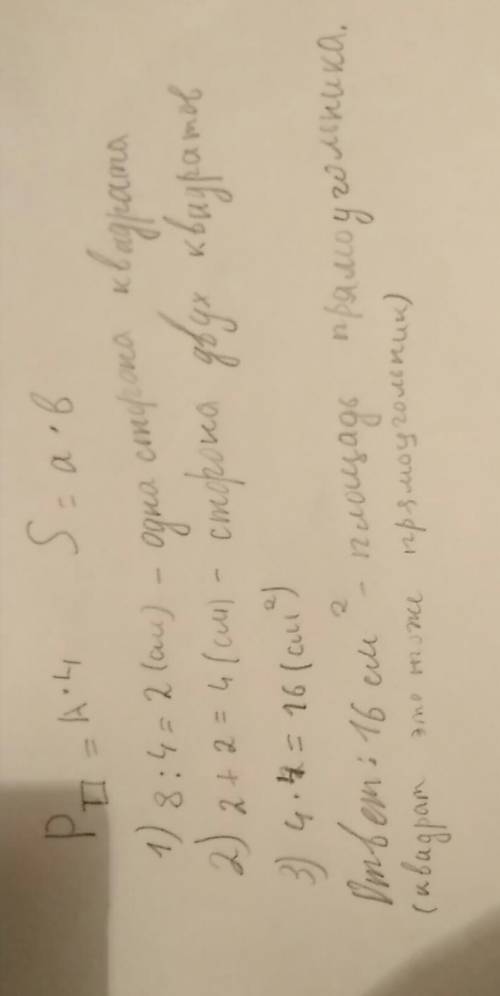 P□ = A · 4 S = a · в
1) 8 : 4 = 2 (см) – одна сторона квадрата
2) 2 + 2 = 4 (см) – сторона двух квадратов
3) 4 · 4 = 16 (см²)
Ответ: 16 см² – площадь прямоугольника.
(квадрат это тоже прямоугольник)